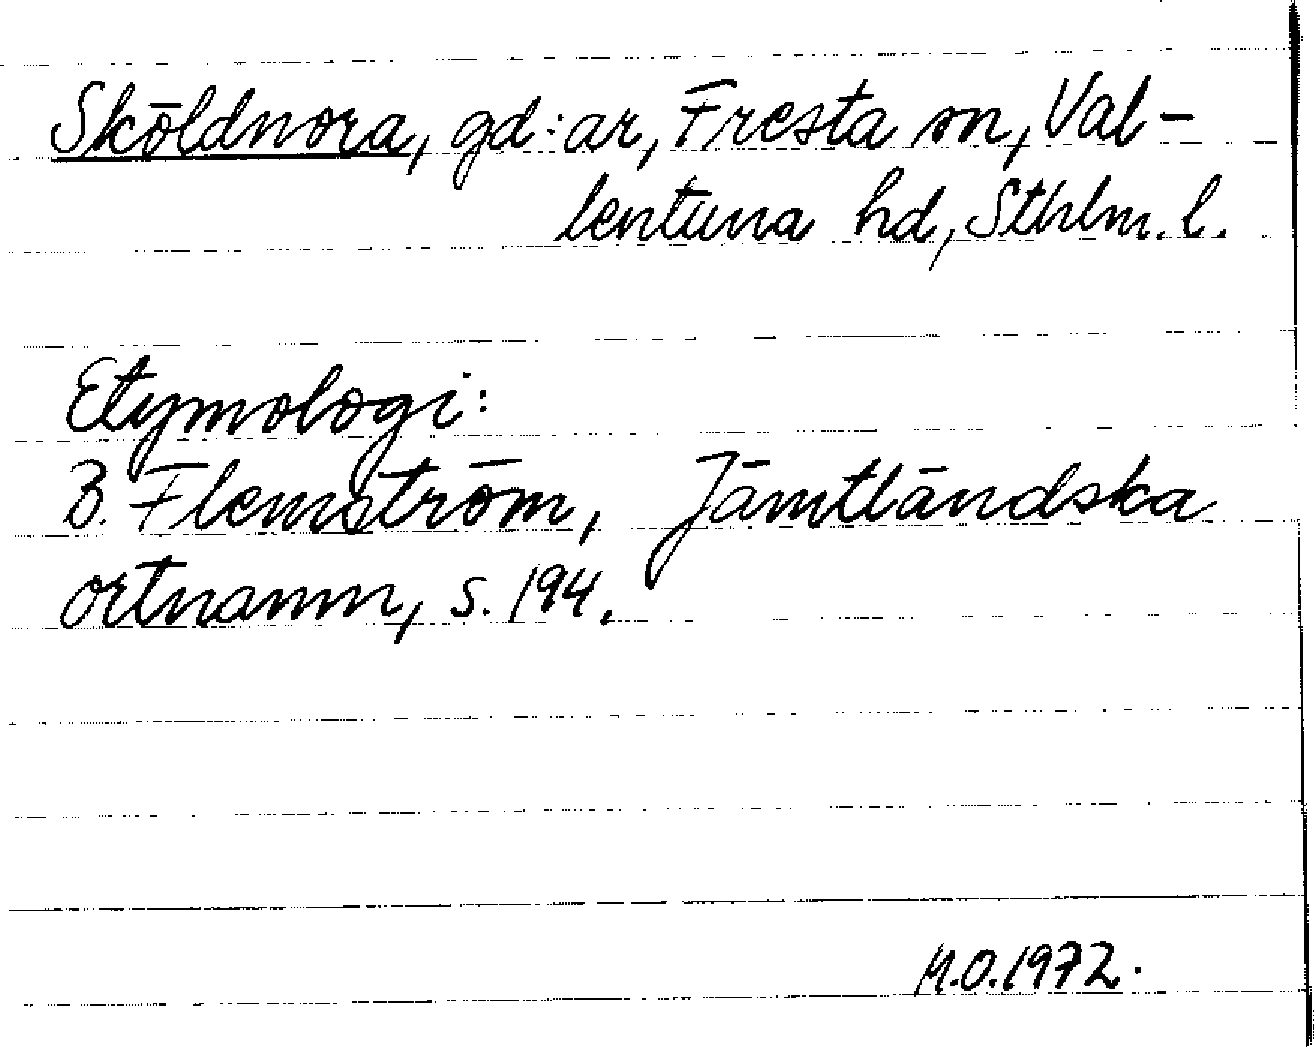 Sköldnora, gd:ar, Fresta sn, Val-
lentuna hd, Sthlm. l.
Etymologi:
B. Flemström, Jämtländska
ortnamn, s. 194.
M.O.1972.